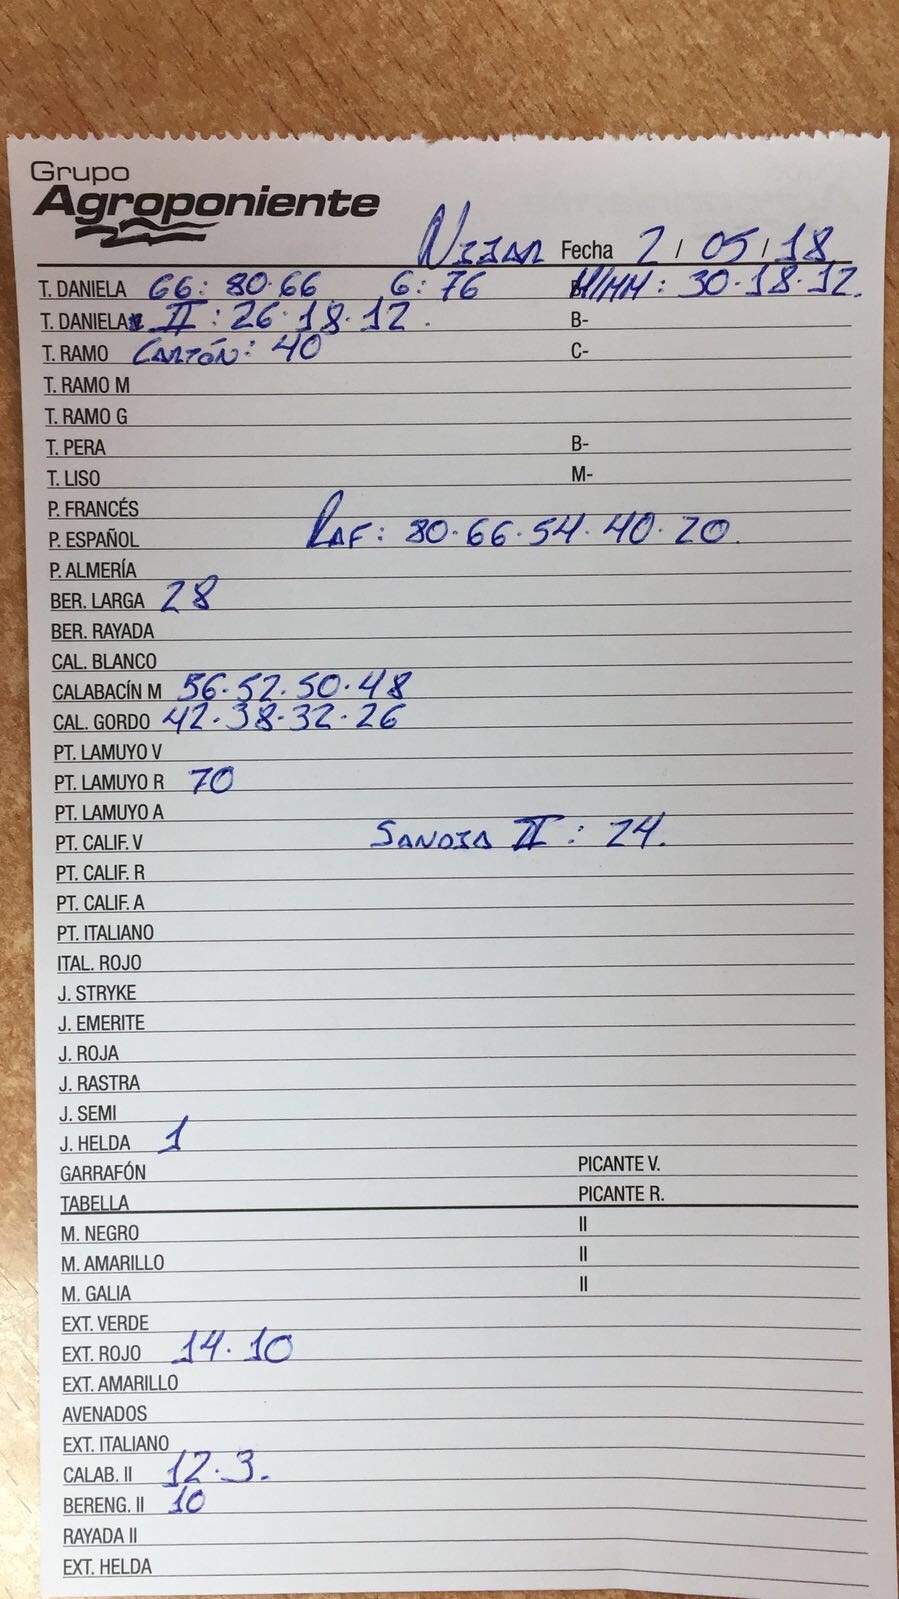 Grupo
Agroponiente
NIJAR Fecha 2 / 05 / 18
T. DANIELA 66: 80·66 6: 76 M/MM: 30·18·12.
T. DANIELA II: 26·18·12. B-
T. RAMO CARTÓN: 40 C-
T. RAMO M
T. RAMO G
T. PERA B-
T. LISO M-
P. FRANCÉS
P. ESPAÑOL RAF: 80·66·54·40·20.
P. ALMERÍA
BER. LARGA 28
BER. RAYADA
CAL. BLANCO
CALABACÍN M 56·52·50·48
CAL. GORDO 42·38·32·26
PT. LAMUYO V
PT. LAMUYO R 70
PT. LAMUYO A
PT. CALIF. V SANDIA II: 24.
PT. CALIF. R
PT. CALIF. A
PT. ITALIANO
ITAL. ROJO
J. STRYKE
J. EMERITE
J. ROJA
J. RASTRA
J. SEMI
J. HELDA 1
GARRAFÓN PICANTE V.
TABELLA PICANTE R.
M. NEGRO II
M. AMARILLO II
M. GALIA II
EXT. VERDE
EXT. ROJO 14·10
EXT. AMARILLO
AVENADOS
EXT. ITALIANO
CALAB. II 12·3.
BERENG. II 10
RAYADA II
EXT. HELDA